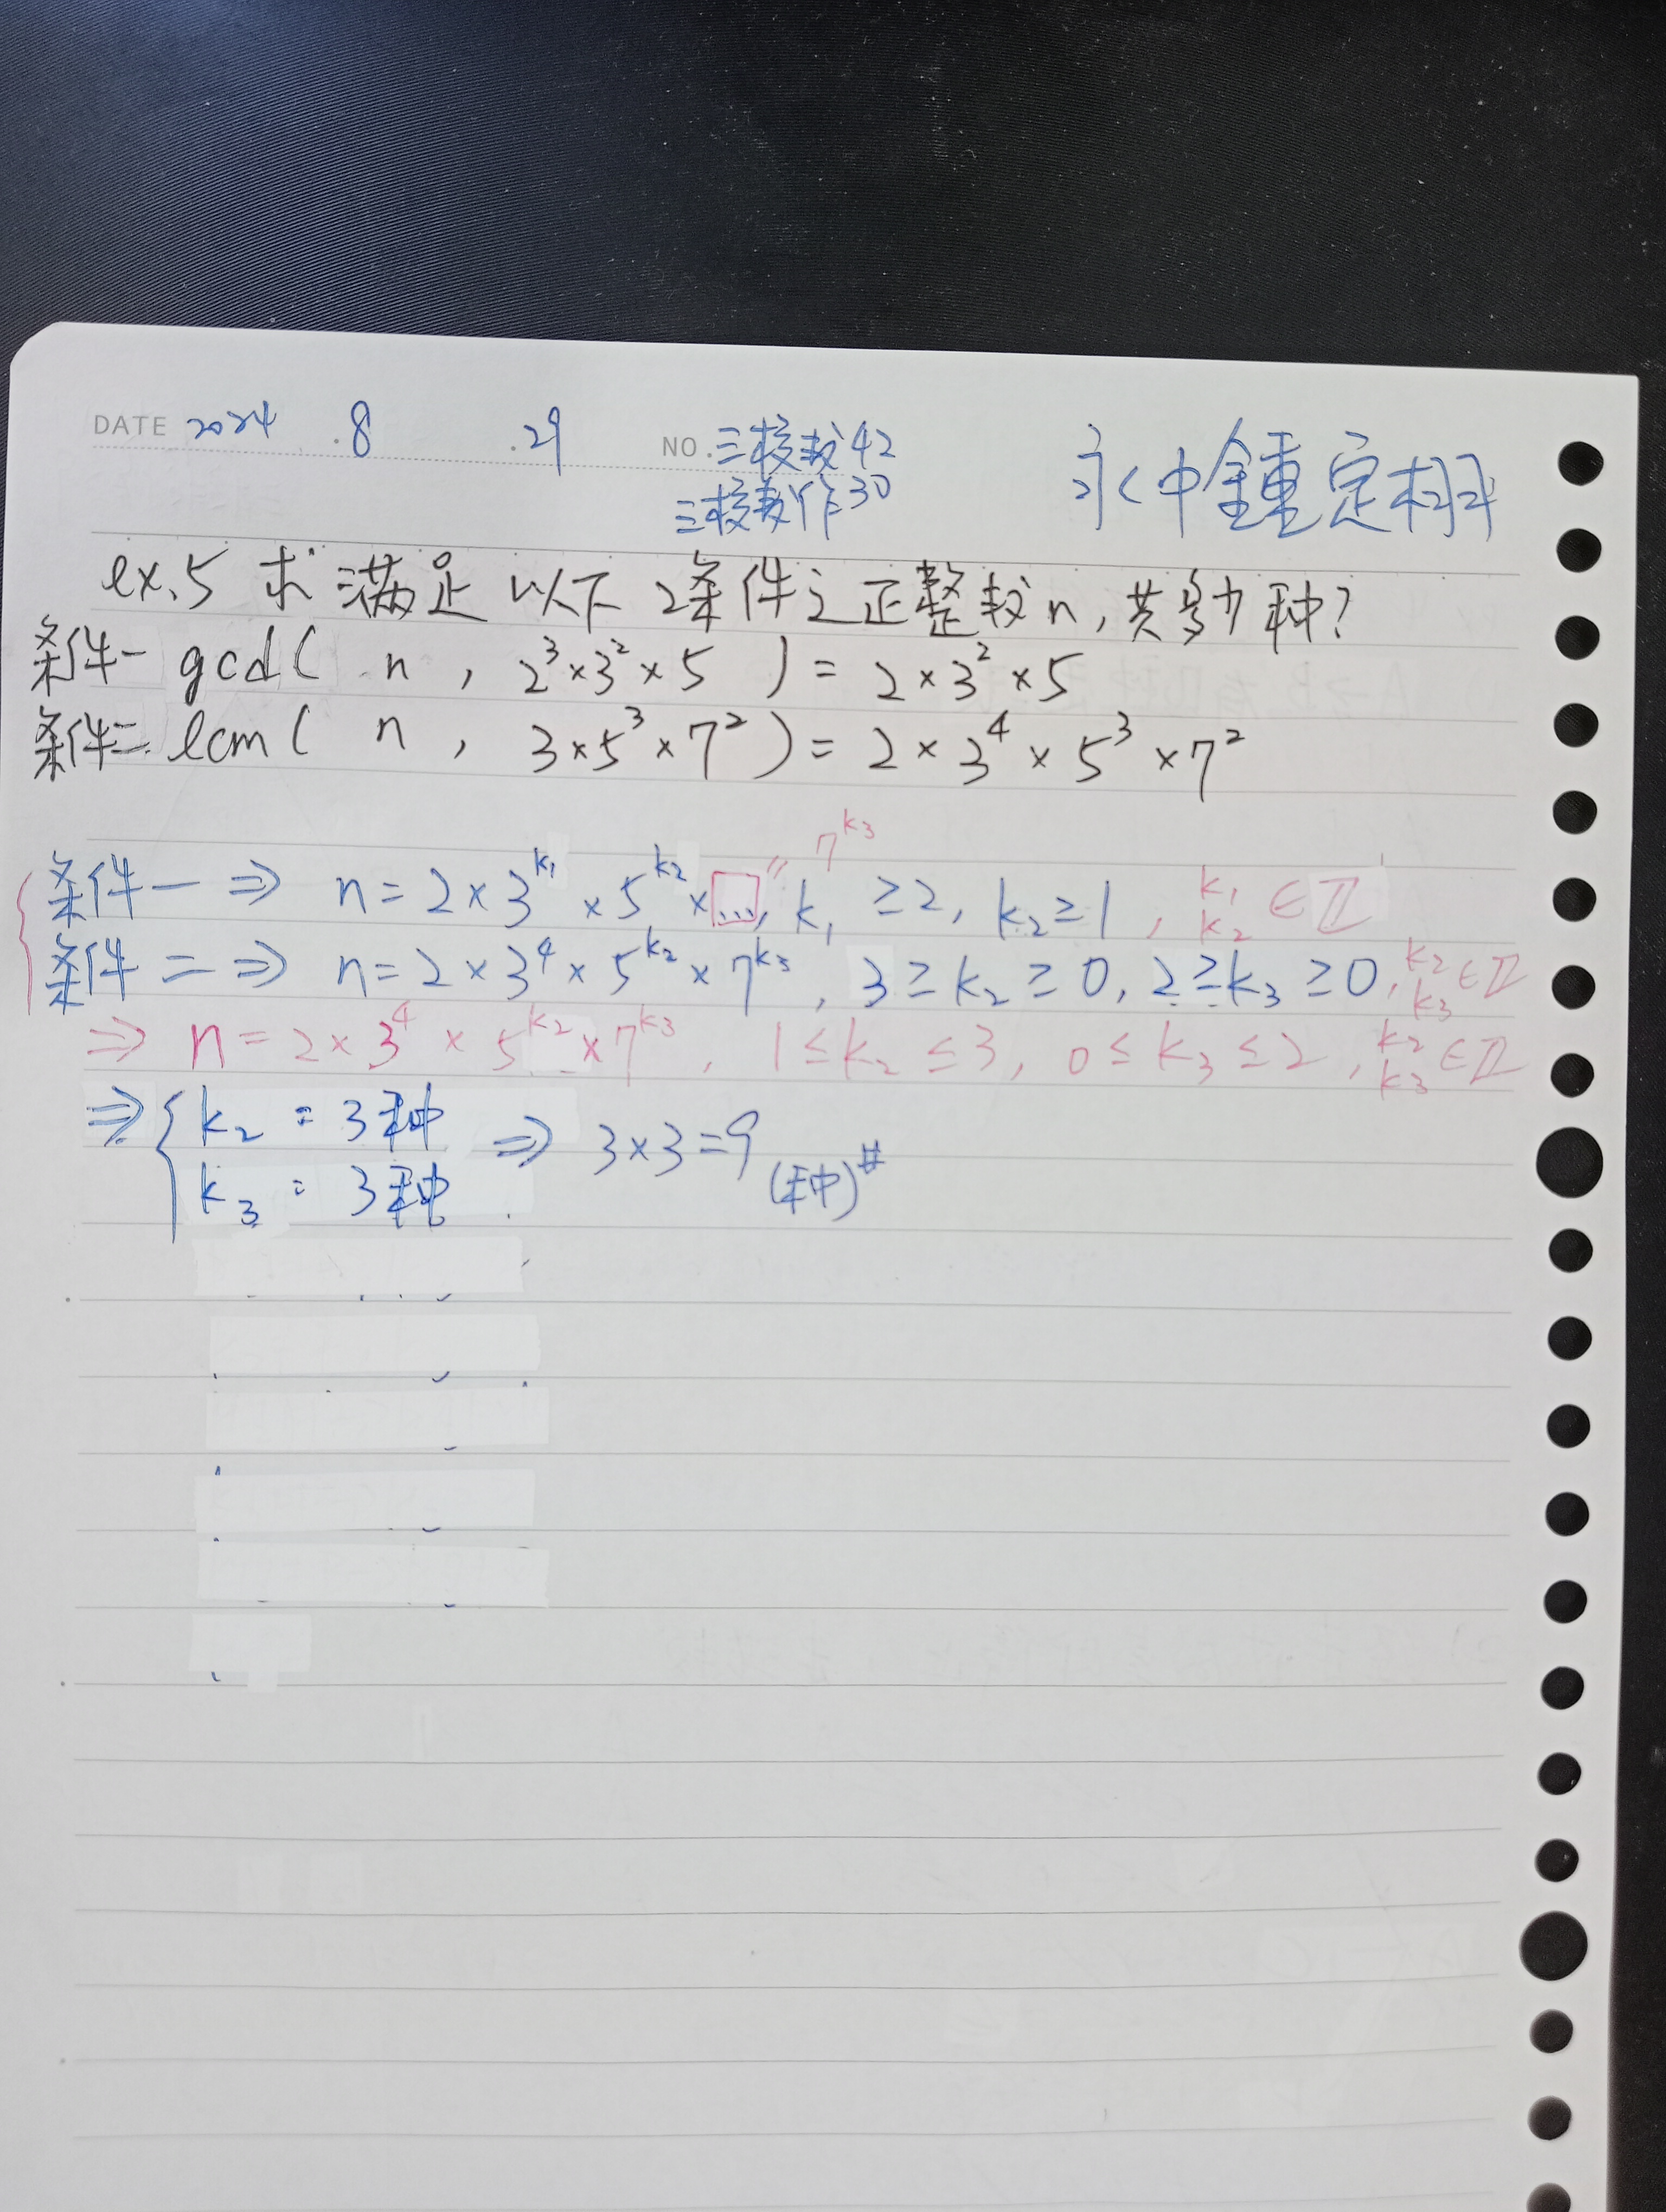 DATE 2024 .8 .29 NO. 三校数42
三校教作30
永中鍾定栩
ex.5 求満足以下2条件之正整数n,共多少种?
条件一 gcd( n , 2³×3²×5 ) = 2×3²×5
条件二 lcm( n , 3×5³×7² ) = 2×3⁴×5³×7²
7^k₃
条件一 ⇒ n=2×3^k₁×5^k₂×[...]", k₁≥2, k₂≥1, k₁ k₂ ∈ℤ
条件二 ⇒ n=2×3⁴×5^k₂×7^k₃, 3≥k₂≥0, 2≥k₃≥0, k₂ k₃ ∈ℤ
⇒ n=2×3⁴×5^k₂×7^k₃, 1≤k₂≤3, 0≤k₃≤2, k₂ k₃ ∈ℤ
⇒ { k₂ : 3种 ⇒ 3×3=9 (种)#
k₃ : 3种